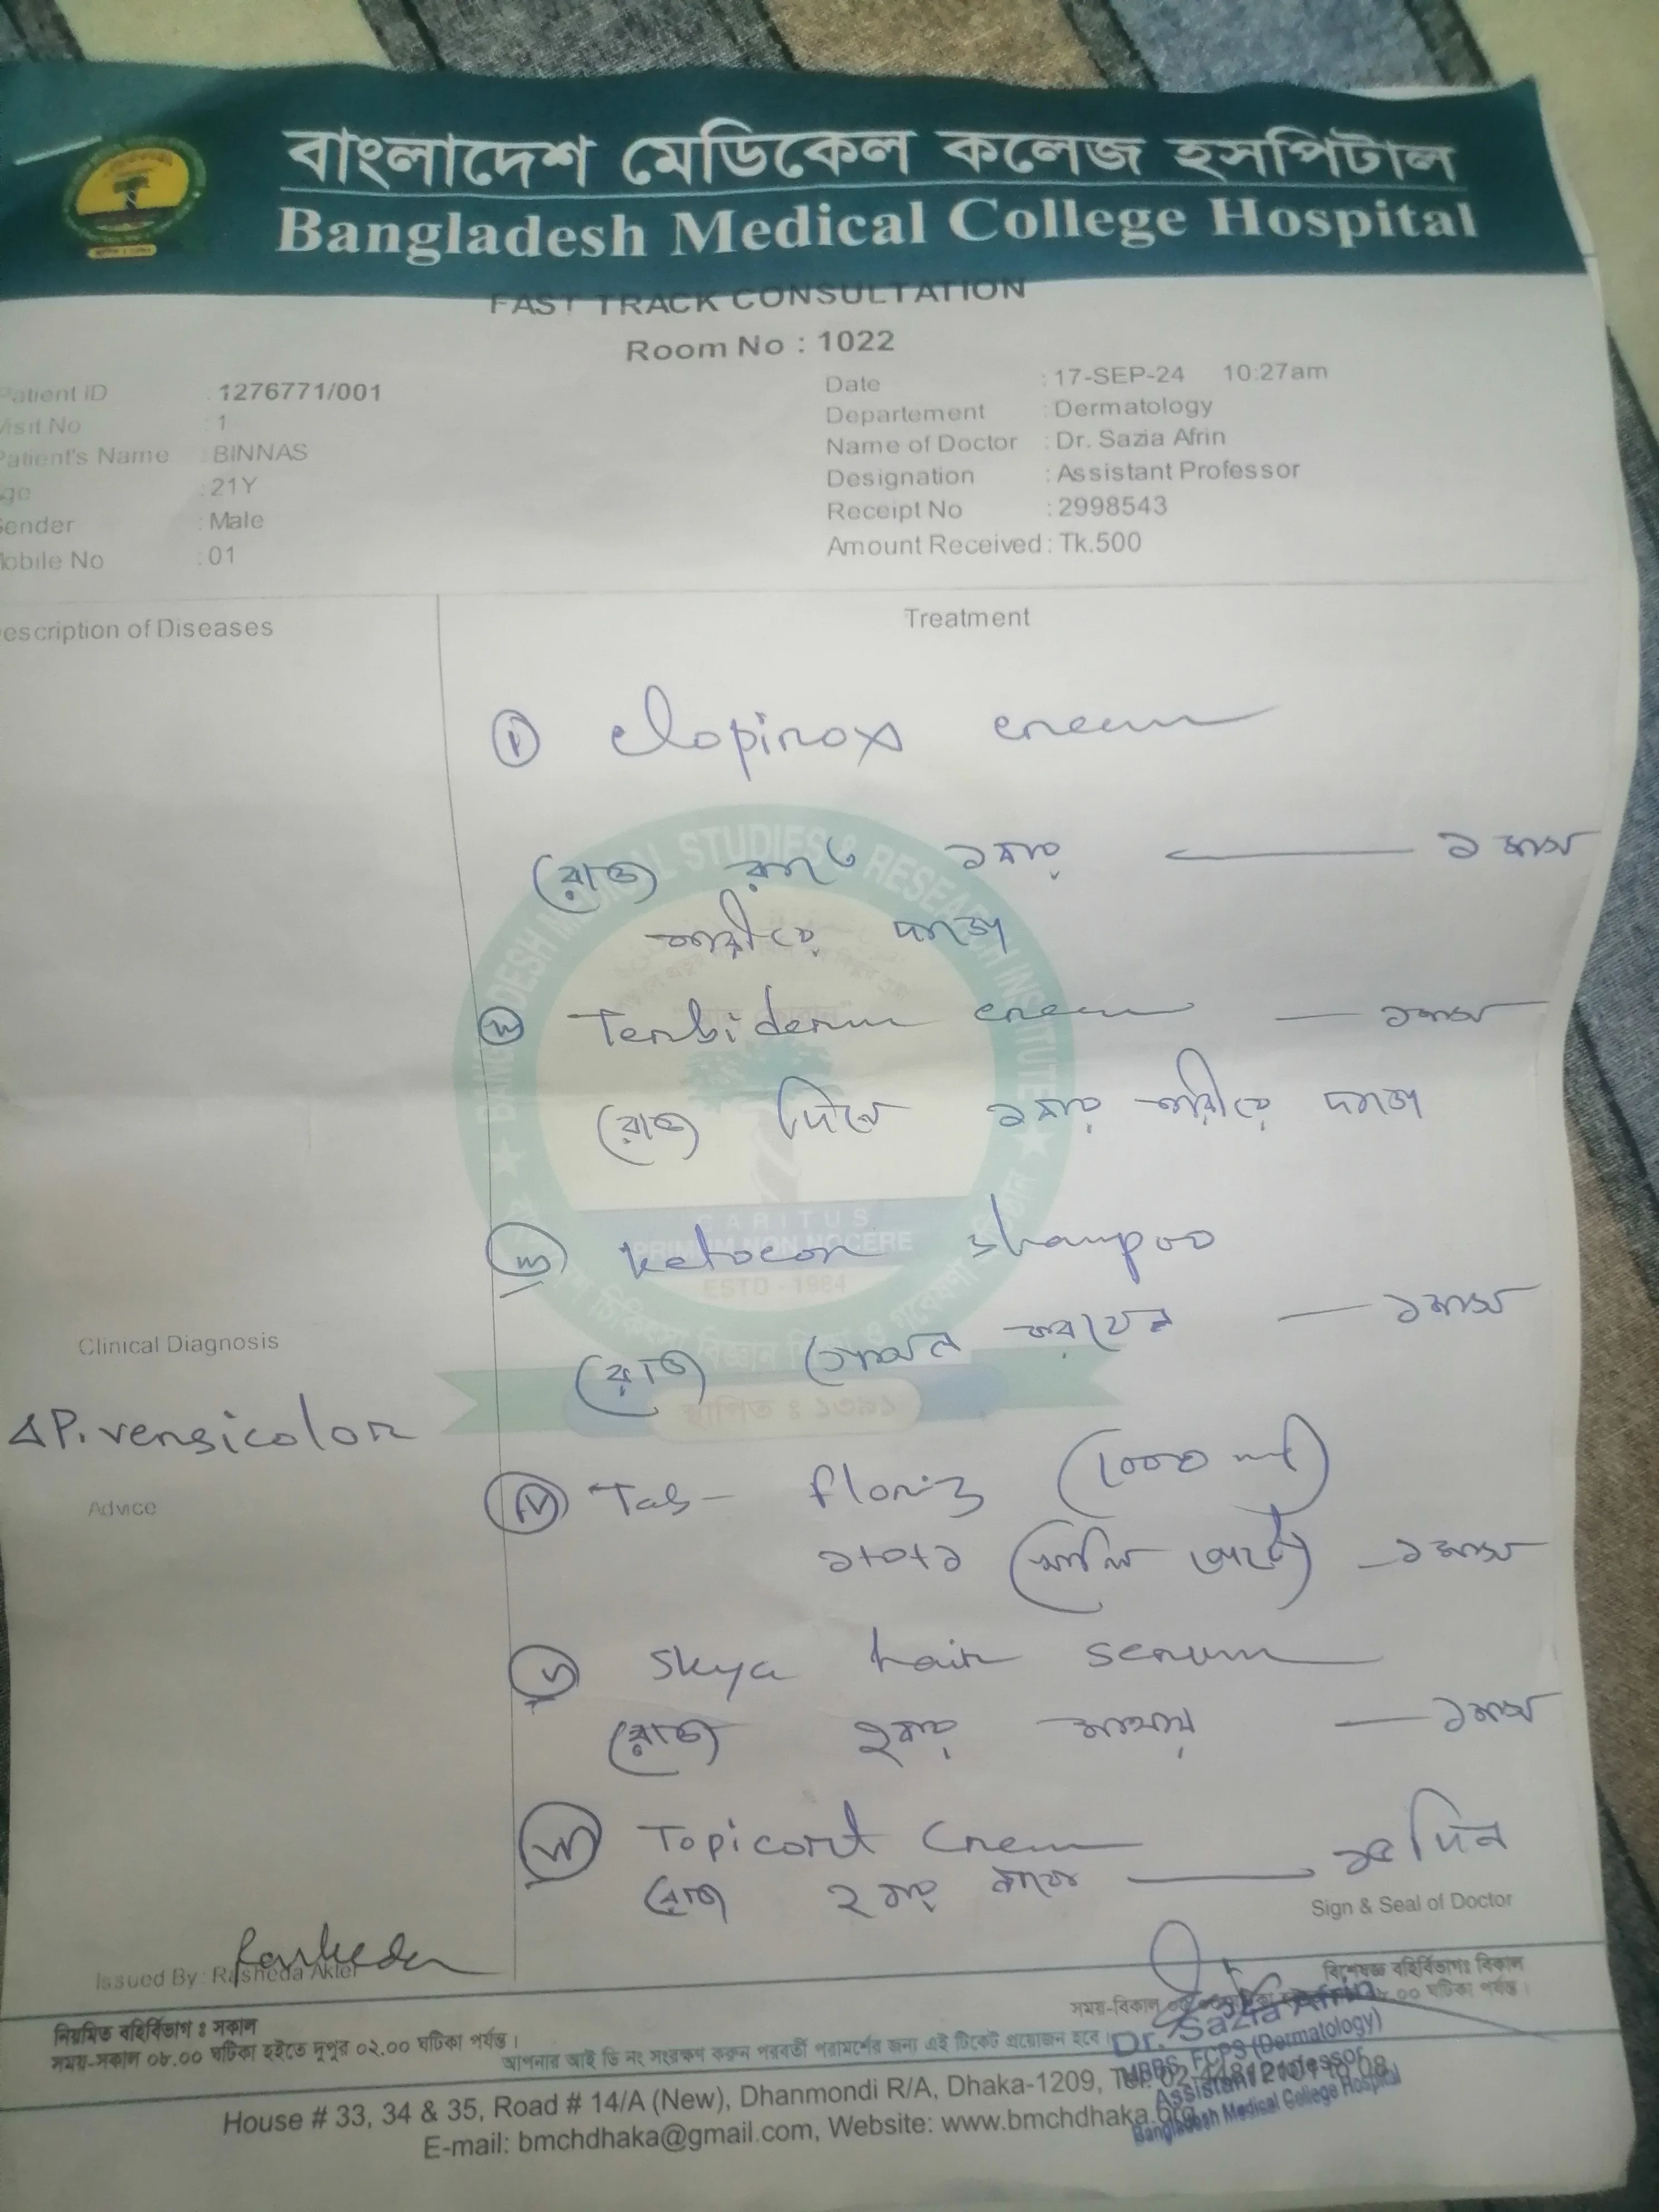 বাংলাদেশ মেডিকেল কলেজ হসপিটাল
Bangladesh Medical College Hospital
FAST TRACK CONSULTATION
Room No : 1022
Patient ID : 1276771/001
Visit No : 1
Patient's Name : BINNAS
Age : 21Y
Gender : Male
Mobile No : 01
Date : 17-SEP-24 10:27am
Departement : Dermatology
Name of Doctor : Dr. Sazia Afrin
Designation : Assistant Professor
Receipt No : 2998543
Amount Received : Tk.500
Description of Diseases
Treatment
i clopirox cream
রোজ রাতে ১বার — ১ মাস
শরীরে দাগে
ii Terbiderm cream — ১ মাস
রোজ দিনে ১বার শরীরে দাগে
iii ketocon shampoo
রোজ গোসল করবেন — ১ মাস
Clinical Diagnosis
Δ P. versicolor
Advice
iv Tab - (1000
১+০+১ (খালি পেটে) — ১ মাস
v Skya hair serum
রোজ ২বার মাথায় — ১ মাস
vi Topicort Cream
রোজ ২ বার — ১৫ দিন
Sign & Seal of Doctor
Issued By : Rasheda Akter
নিয়মিত বহির্বিভাগ ঃ সকাল
সময়-সকাল ০৮.০০ ঘটিকা হইতে দুপুর ০২.০০ ঘটিকা পর্যন্ত।
বিশেষজ্ঞ বহির্বিভাগঃ বিকাল
সময়-বিকাল ০০ ঘটিকা পর্যন্ত।
আপনার আই ডি নং সংরক্ষণ করুন পরবর্তী পরামর্শের জন্য এই টিকেট প্রয়োজন হবে।
Dr. Sazia Afrin
MBBS, FCPS (Dermatology)
Assistant Professor
Bangladesh Medical College Hospital
House # 33, 34 & 35, Road # 14/A (New), Dhanmondi R/A, Dhaka-1209,
E-mail: bmchdhaka@gmail.com, Website: www.bmchdhaka.org
BANGLADESH MEDICAL STUDIES & RESEARCH INSTITUTE
CARITUS
PRIMUM NON NOCERE
ESTD - 1984
স্থাপিত ঃ ১৩৯১